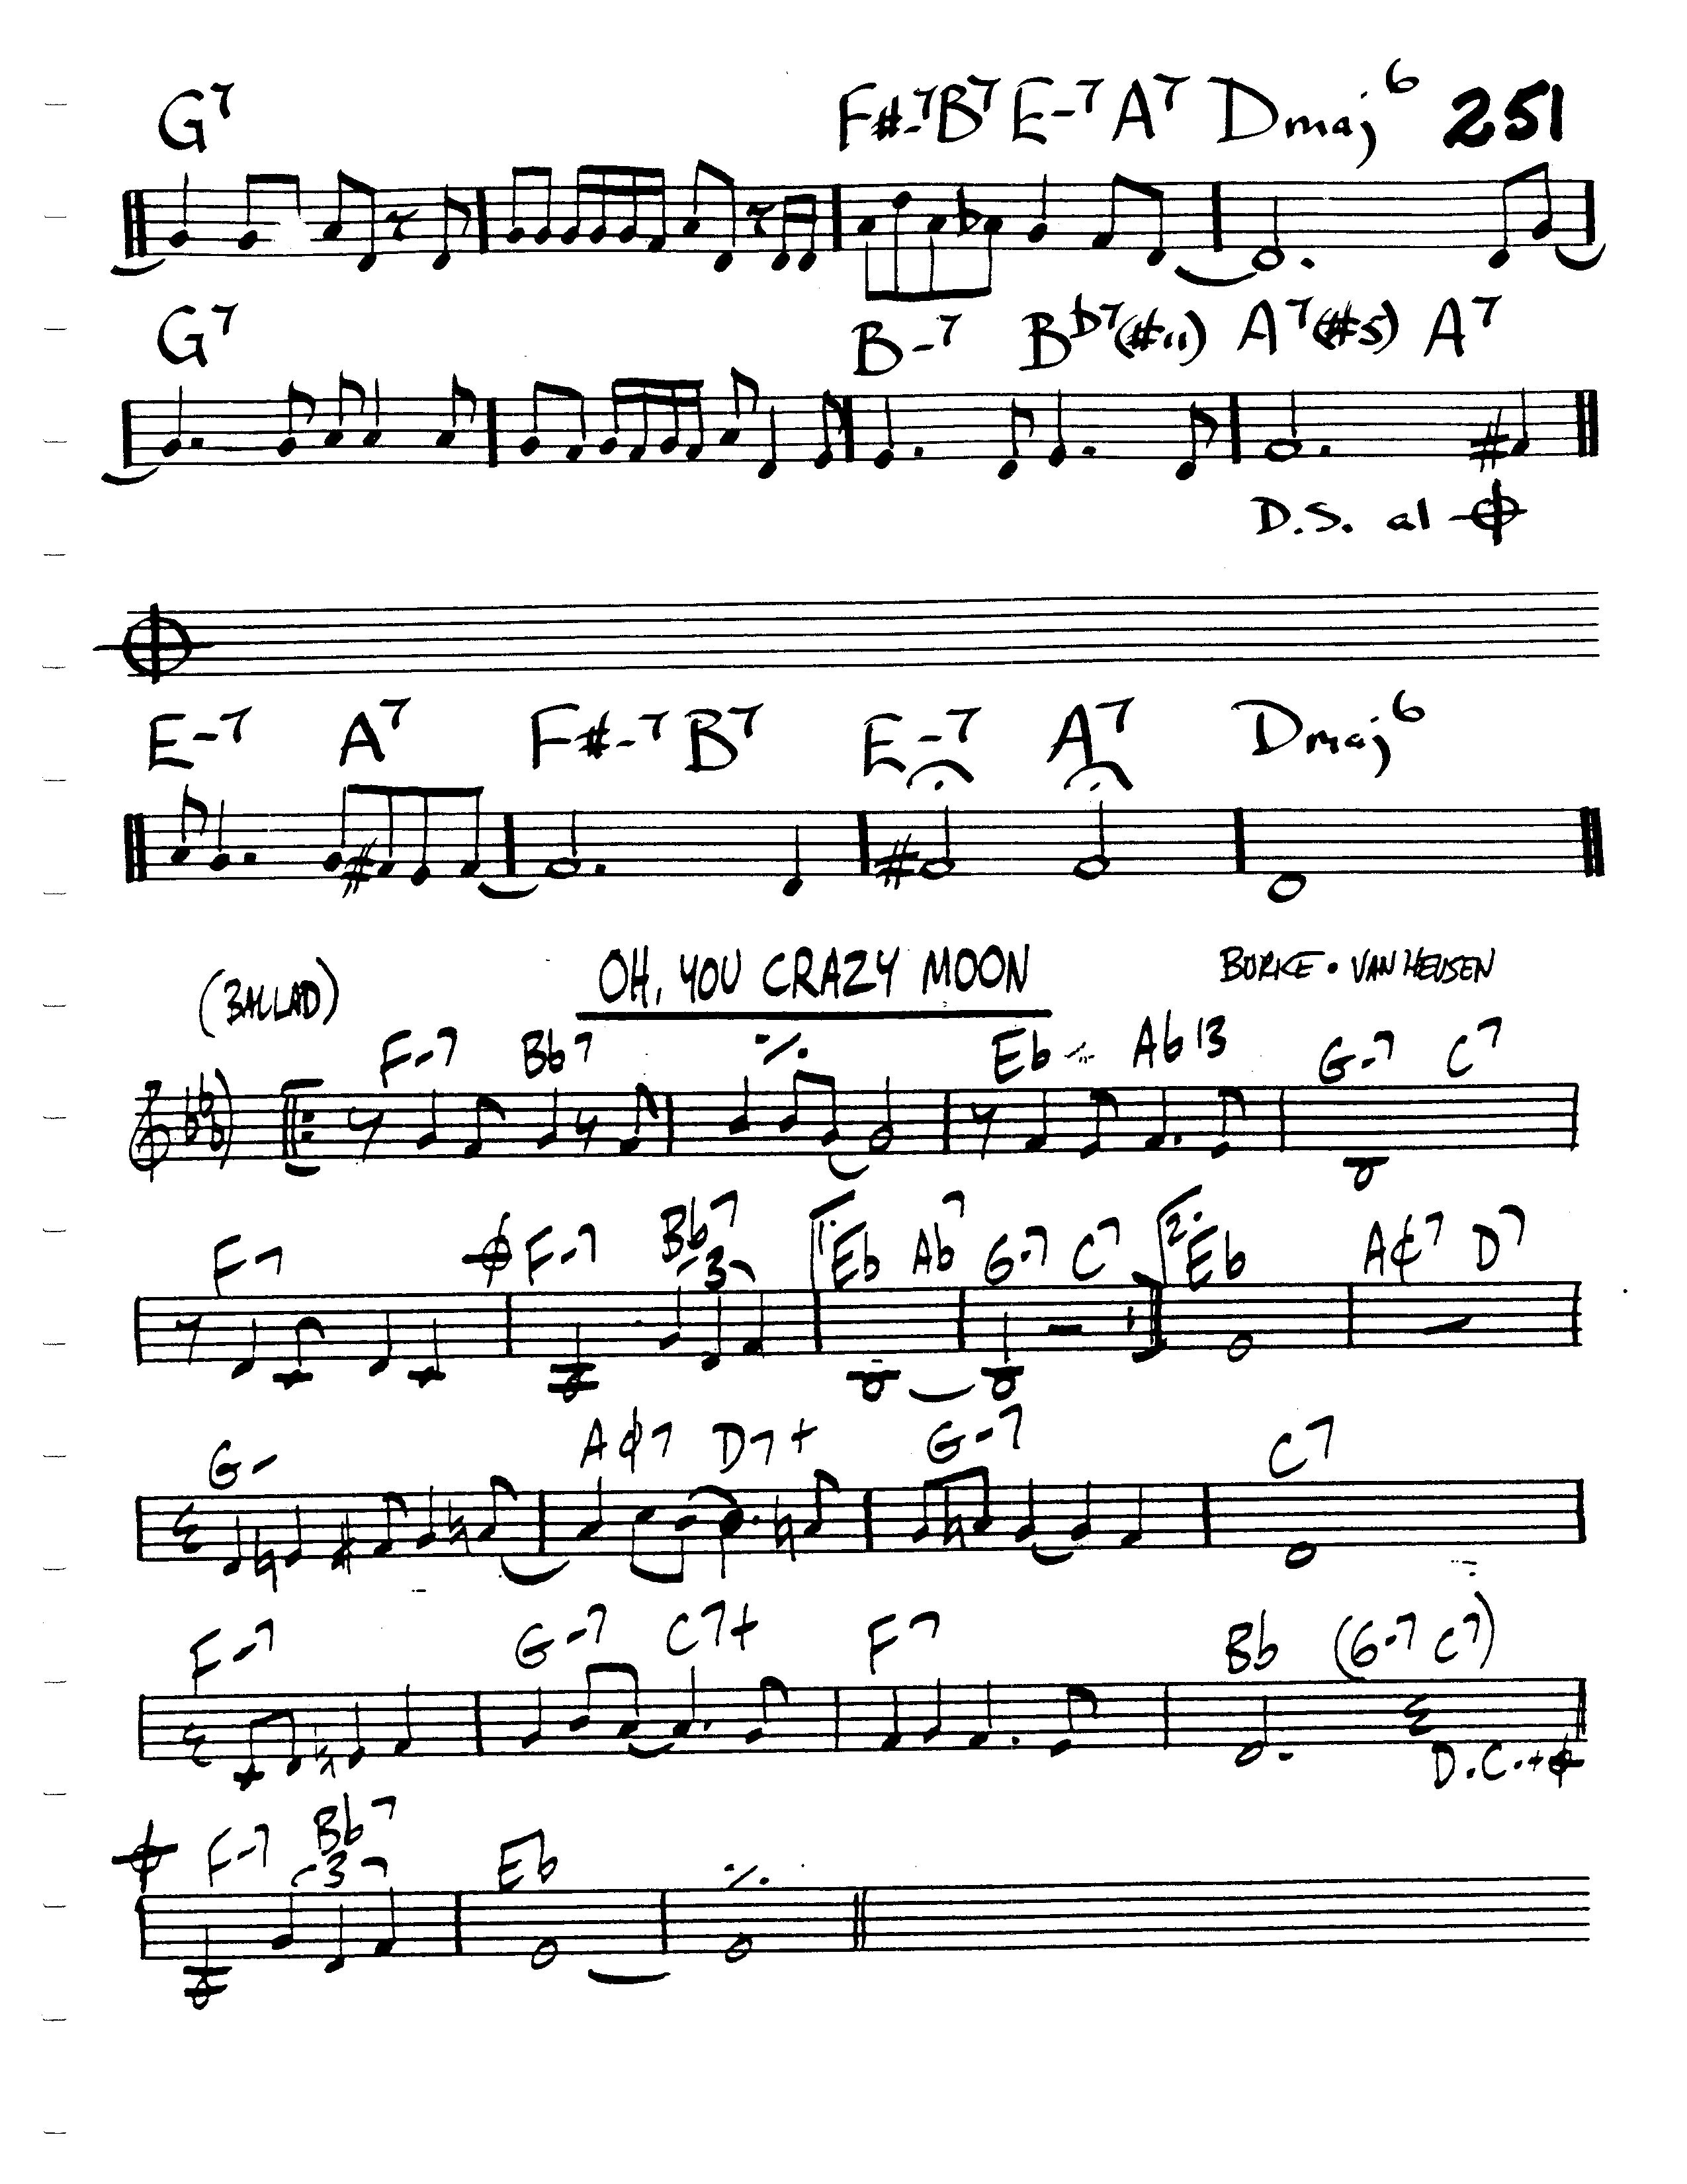 G7 F#-7 B7 E-7 A7 Dmaj6 251
G7 B-7 Bb7(#11) A7(#5) A7
D.S. al
E-7 A7 F#-7 B7 E-7 A7 Dmaj6
(BALLAD) OH, YOU CRAZY MOON BURKE • VAN HEUSEN
F-7 Bb7 Eb Ab13 G-7 C7
F-7 F-7 Bb7 1. Eb Ab7 G-7 C7 2. Eb Aø7 D7
3
G- Aø7 D7+ G-7 C7
F-7 G-7 C7+ F7 Bb (G-7 C7)
D.C.
F-7 Bb7 Eb
3